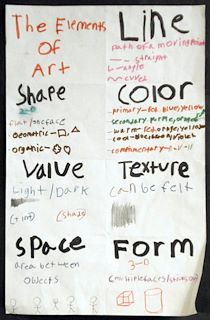 The Elements
Of
Art
Line
path of a moving point
straight
angle
curved
Shape
2-D
flat/one face
Geometric-
organic-
Color
primary-red, blue, yellow
secondary-purple, orange
warm-red, orange, yellow
cool-
complimentary-
Value
Light/Dark
(tint) (shade)
Texture
can be felt
Space
area between
objects
Form
3-D